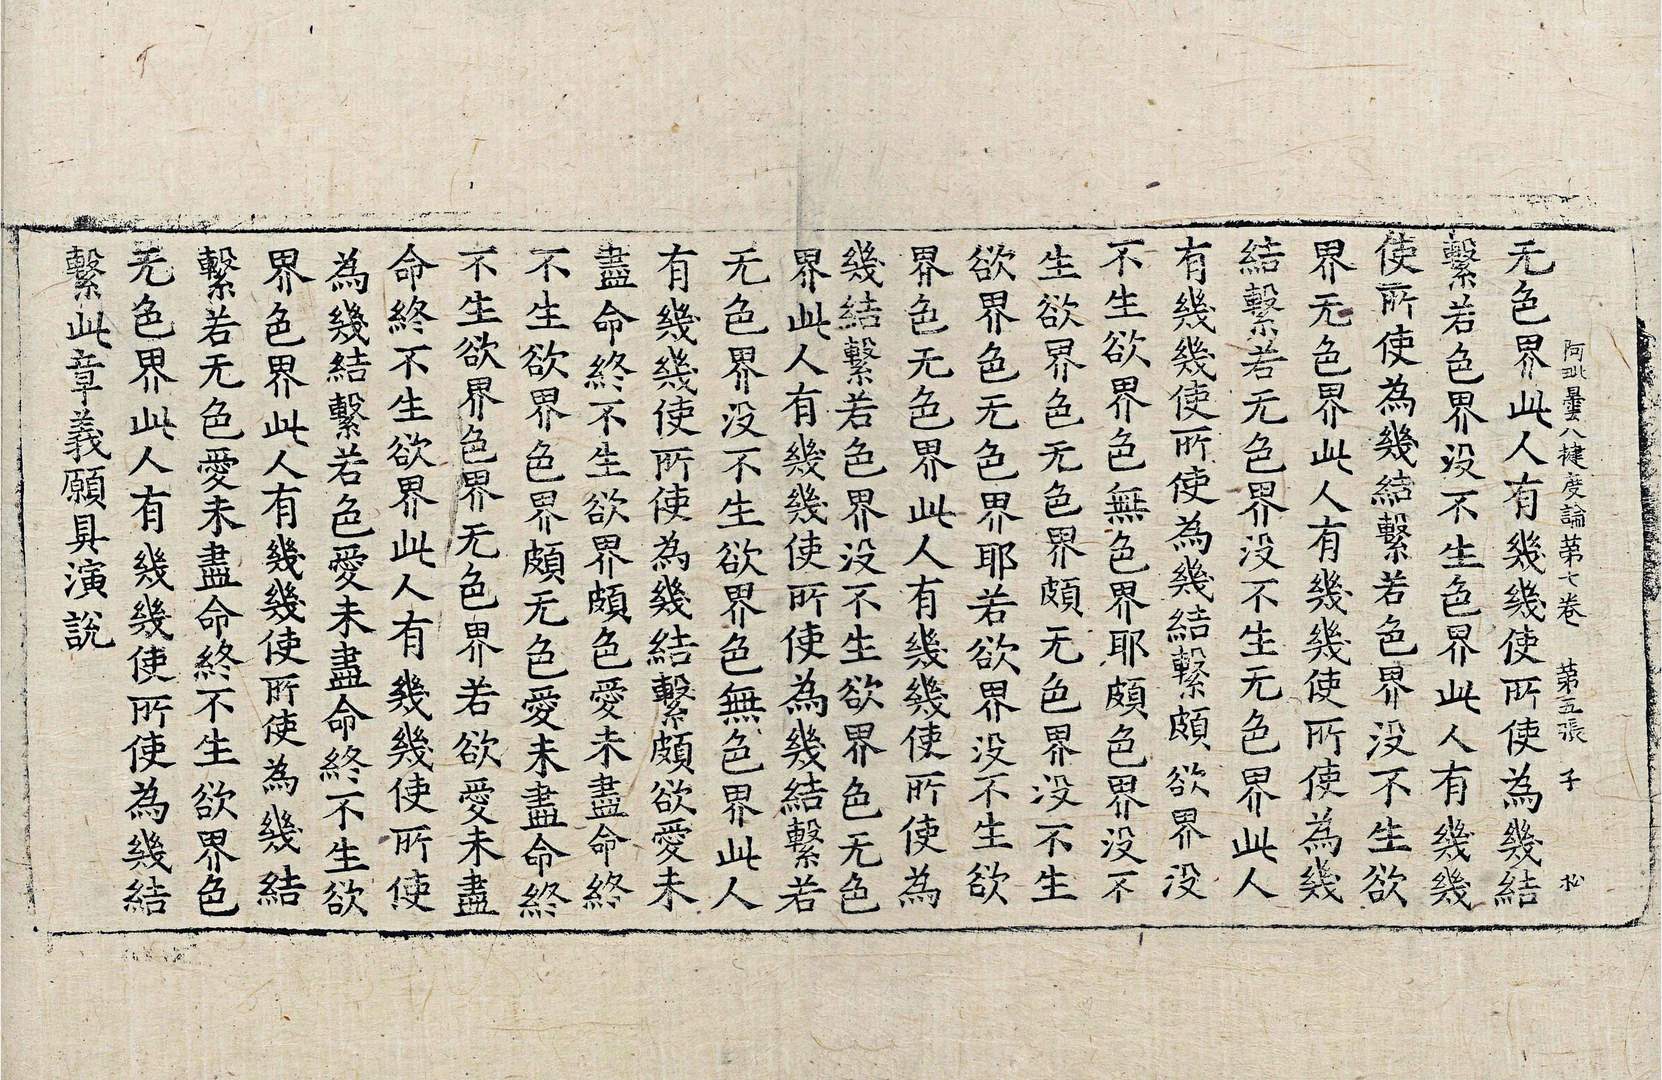 阿毗曇八揵度論第七卷 第五張 子 松
无色界此人有幾幾使所使為幾結
繫若色界没不生色界此人有幾幾
使所使為幾結繫若色界没不生欲
界无色界此人有幾幾使所使為幾
結繫若无色界没不生无色界此人
有幾幾使所使為幾結繫頗欲界没
不生欲界色無色界耶頗色界没不
生欲界色无色界頗无色界没不生
欲界色无色界耶若欲界没不生欲
界色无色界此人有幾幾使所使為
幾結繫若色界没不生欲界色无色
界此人有幾幾使所使為幾結繫若
无色界没不生欲界色無色界此人
有幾幾使所使為幾結繫頗欲愛未
盡命終不生欲界頗色愛未盡命終
不生欲界色界頗无色愛未盡命終
不生欲界色界无色界若欲愛未盡
命終不生欲界此人有幾幾使所使
為幾結繫若色愛未盡命終不生欲
界色界此人有幾幾使所使為幾結
繫若无色愛未盡命終不生欲界色
无色界此人有幾幾使所使為幾結
繫此章義願具演說